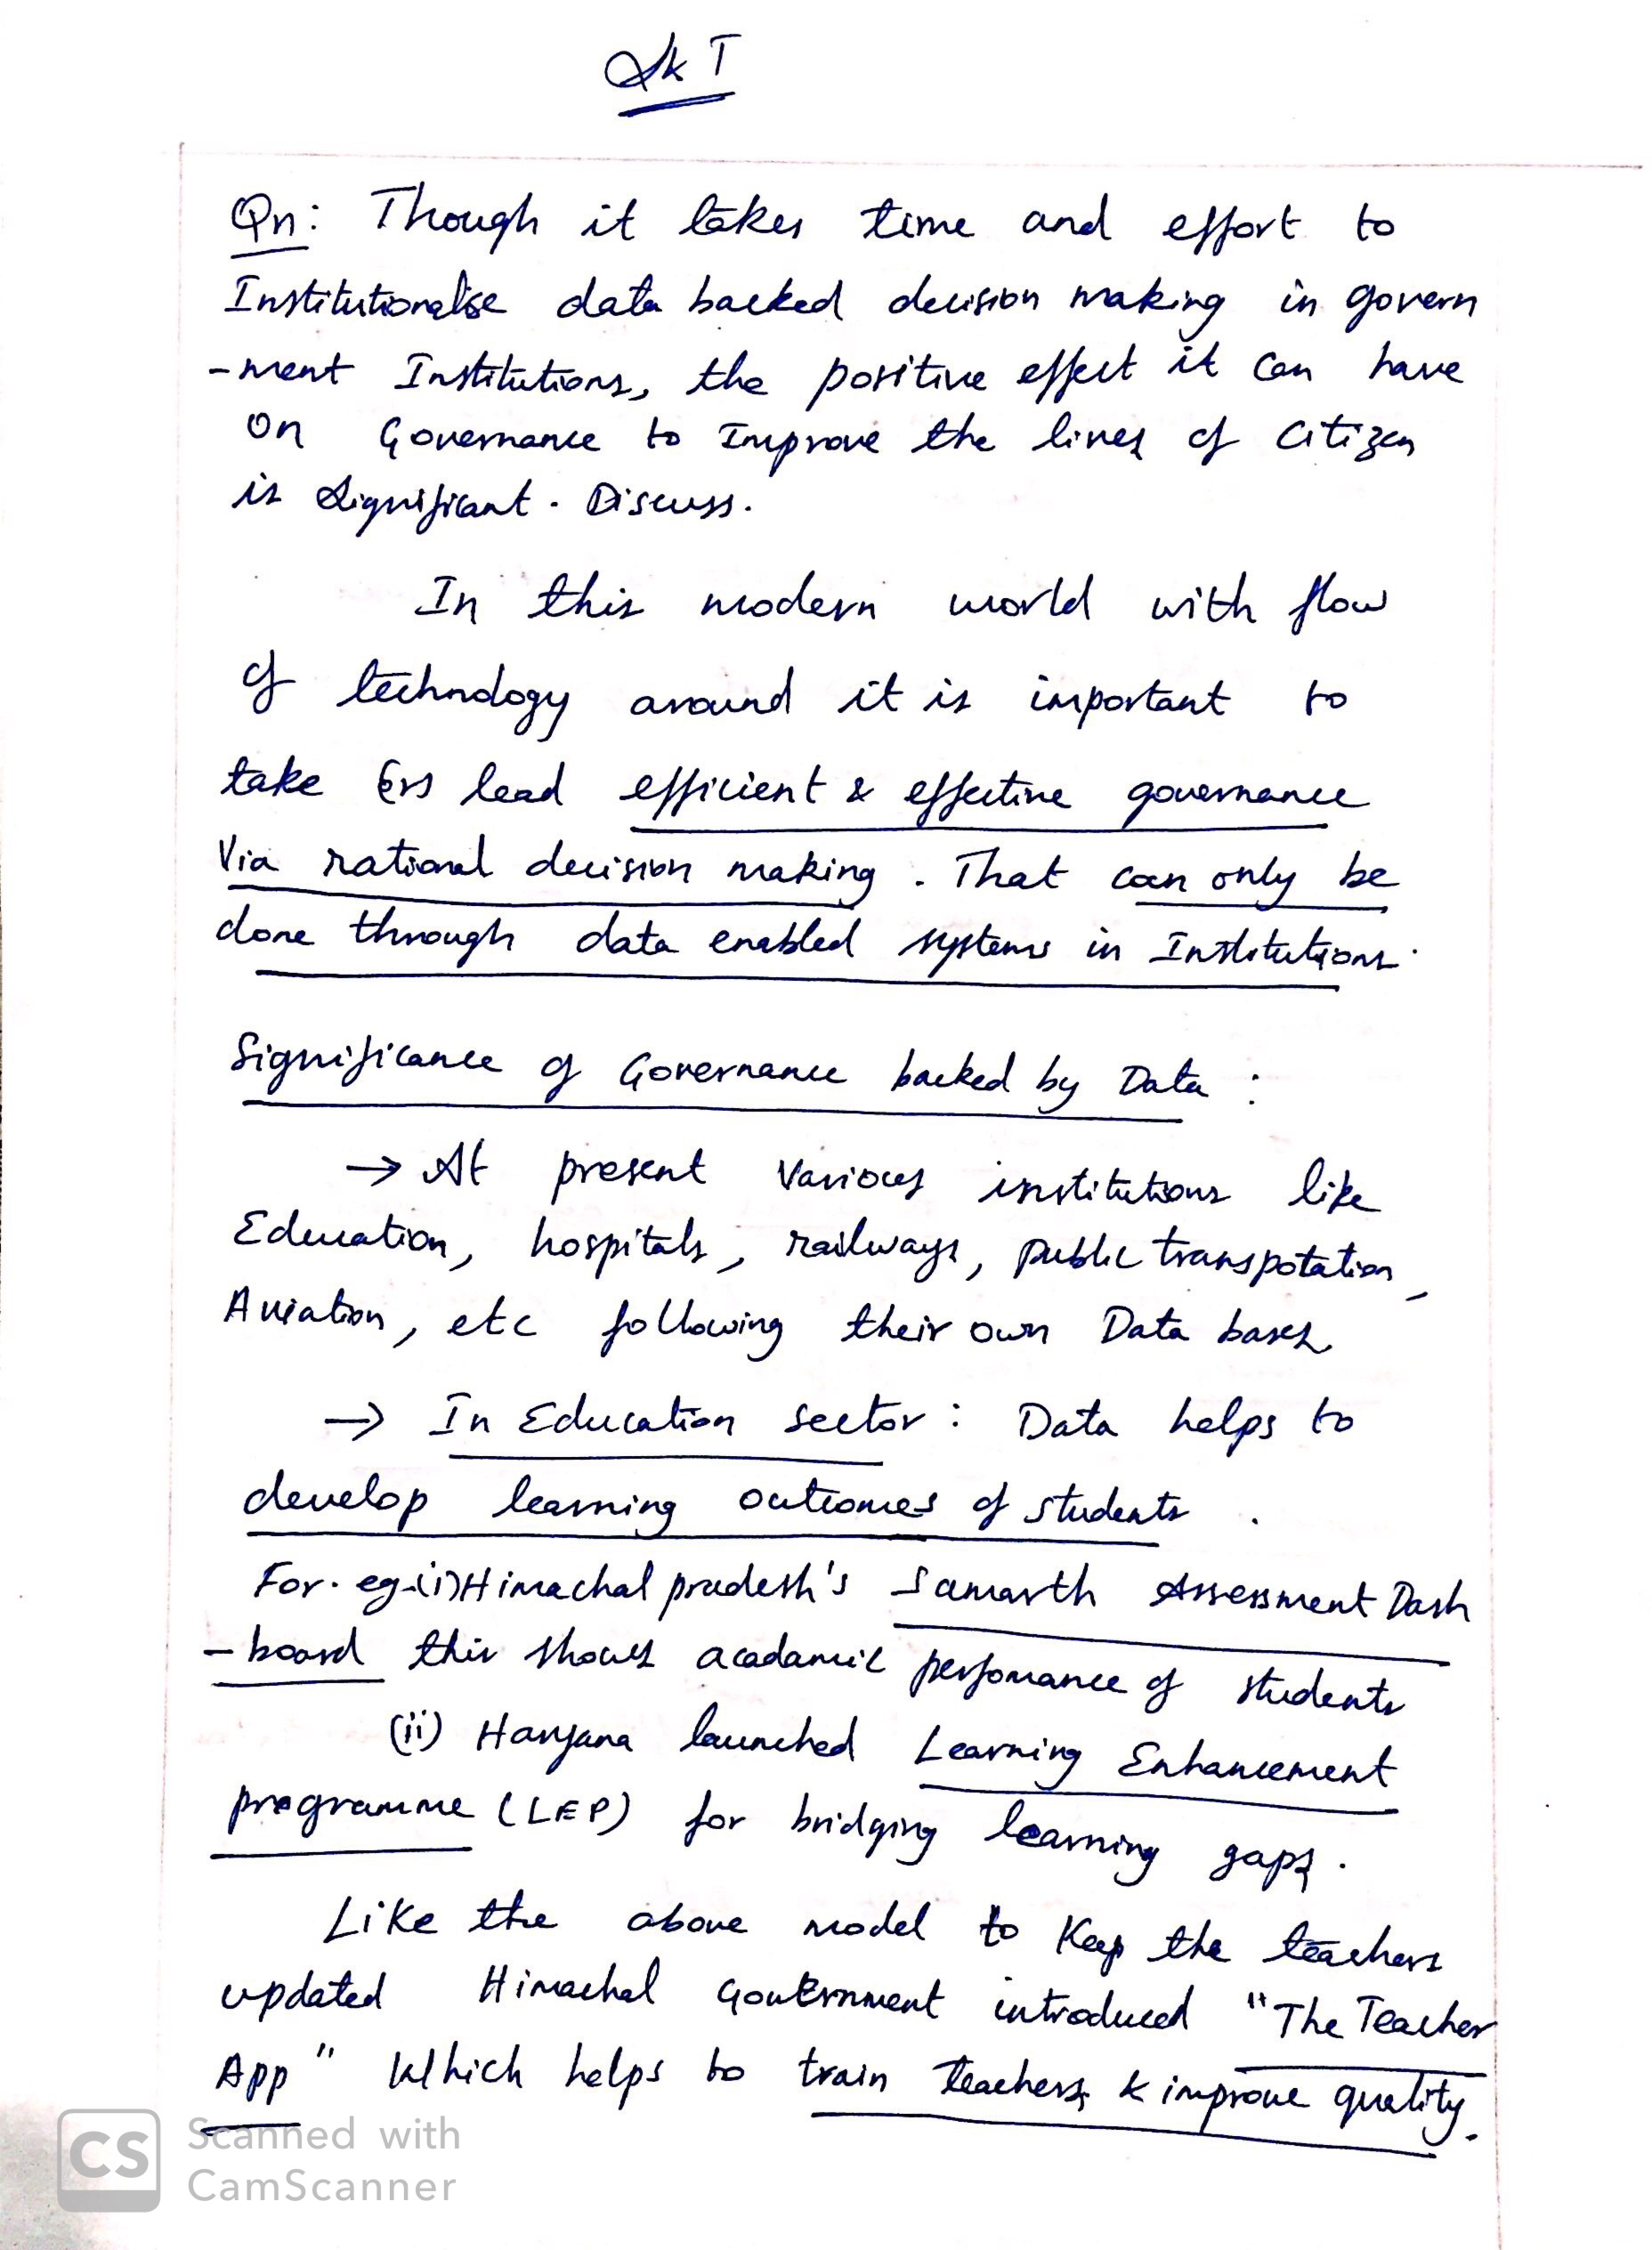 Sk T
Qn: Though it takes time and effort to
Institutionalise data backed decision making in govern
-ment Institutions, the positive effect it can have
on Governance to Improve the lives of Citizen
is significant. Discuss.
In this modern world with flow
of technology around it is important to
take lead efficient & effective governance
Via rational decision making. That can only be
done through data enabled systems in Institutions.
Significance of Governance backed by Data :
→ At present Various institutions like
Education, hospitals, railways, public transpotation,
Aviation, etc following their own Data bases
→ In Education sector : Data helps to
develop learning outcomes of students.
For. eg-(i) Himachal pradesh's Samarth Assessment Dash
-board this shows acadamic perfomance of students
(ii) Haryana launched Learning Enhancement
programme (LEP) for bridging learning gaps.
Like the above model to Keep the teachers
updated Himachal Government introduced "The Teacher
App" Which helps to train teachers & improve quality.
CS Scanned with
CamScanner